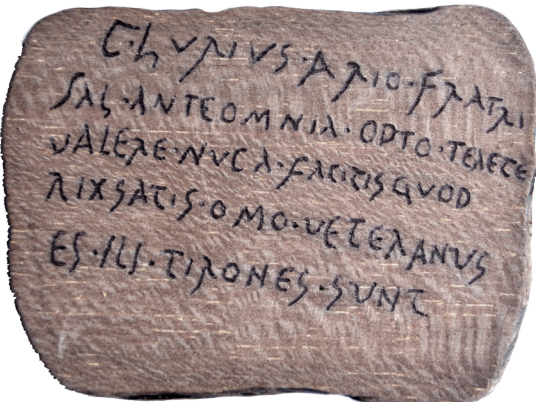 C·LURIUS·ARIO·FRATRI
SAL·ANTEOMNIA·OPTO·TERETE
VALERE·NUCA·FACITIS QUOD
RIXSATIS·OMO·VETERANUS
ES·ILI·TIRONES·SUNT